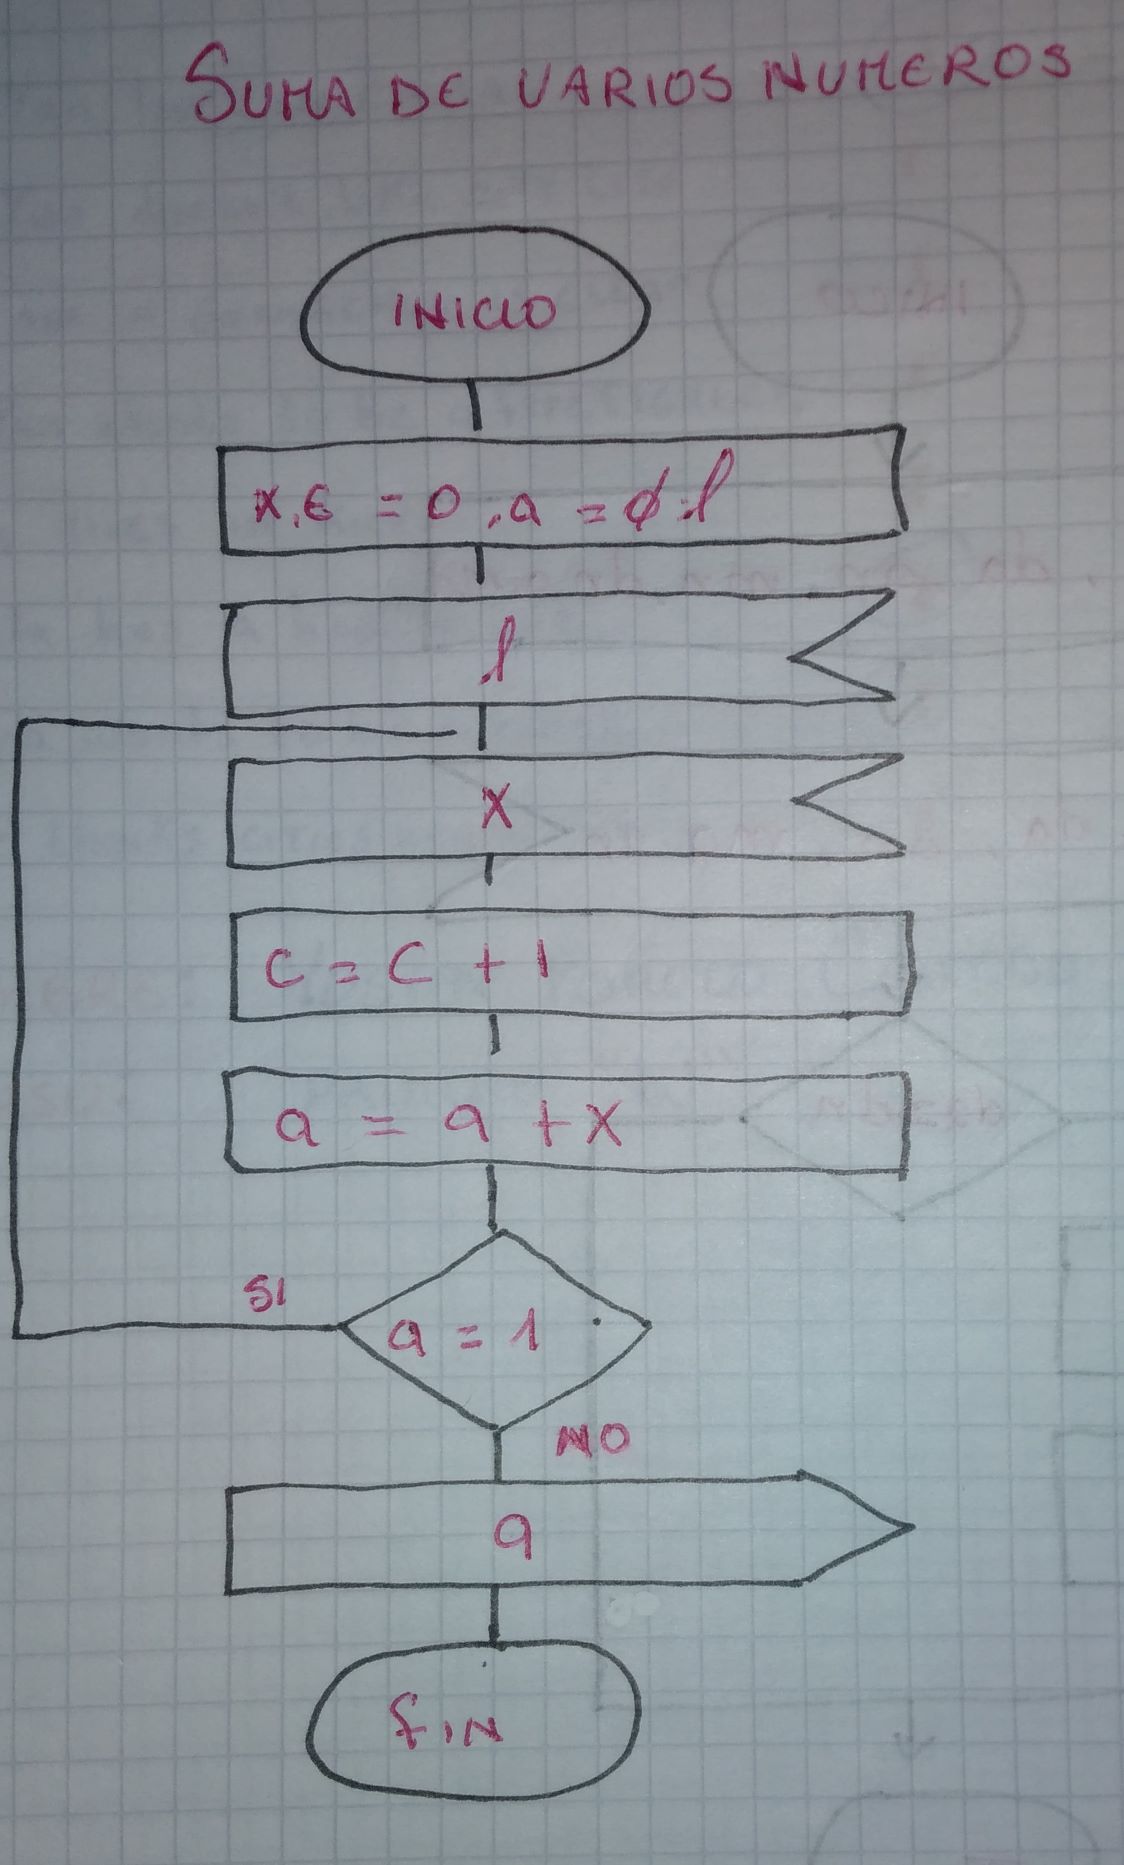 SUMA DE VARIOS NUMEROS
INICIO
x, c = 0, a = 0 l
l
X
C = C + 1
a = a + X
SI
a = 1
NO
a
FIN